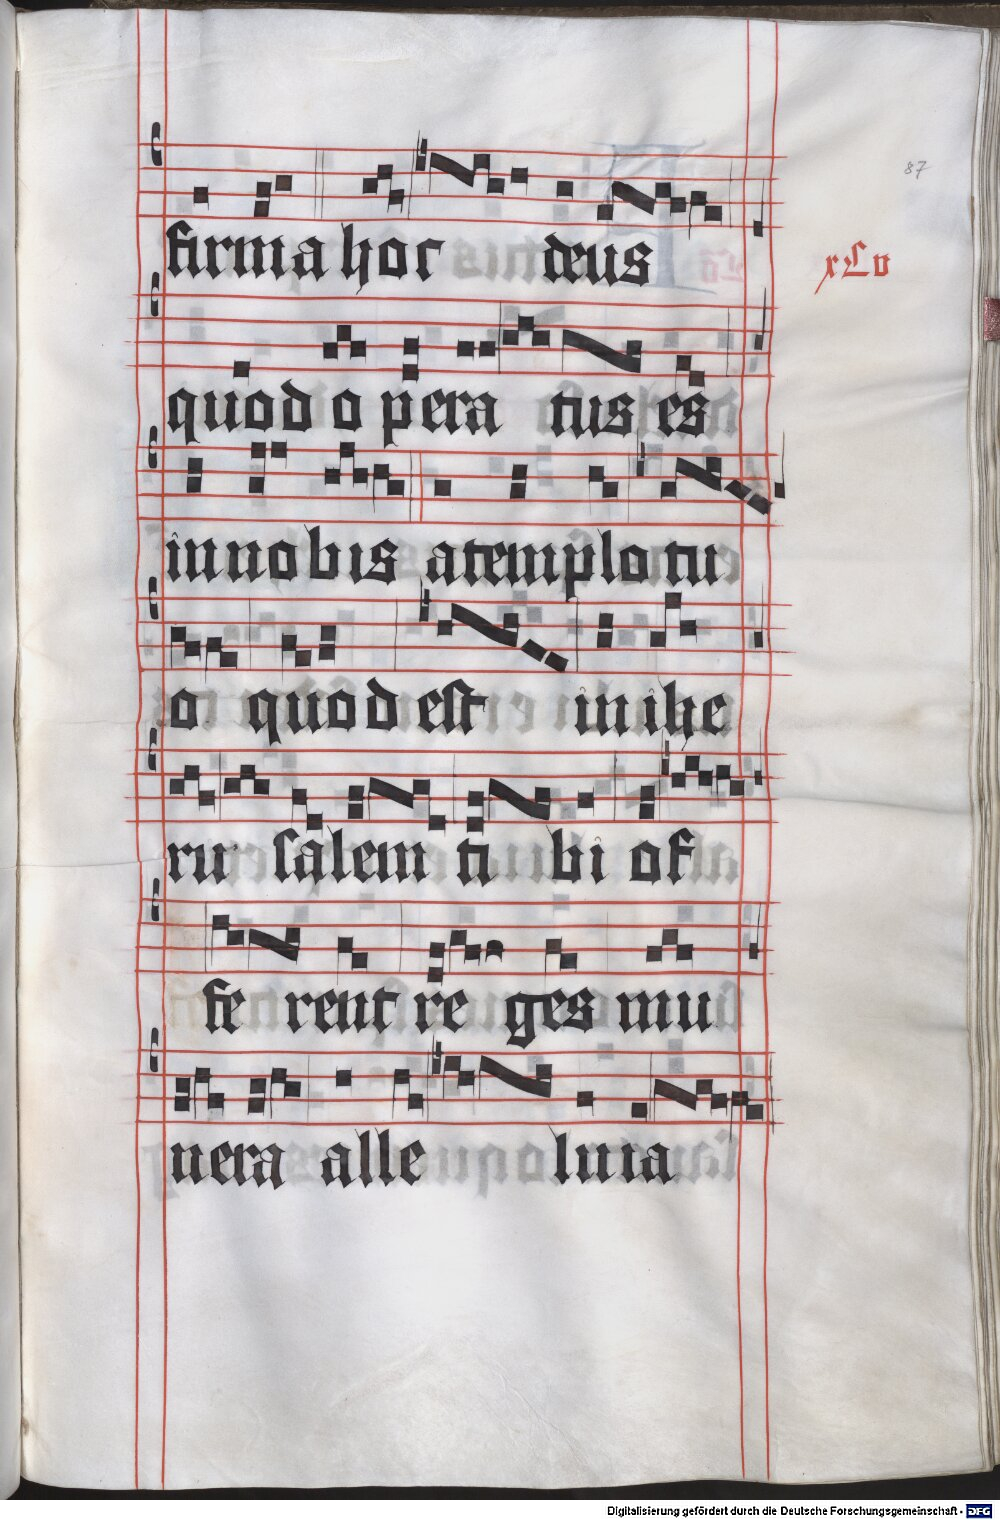 87
firma hoc deus
xLv
quod o pera tus es
in nobis a templo tu
o quod est in ihe
ru salem ti bi of
fe rent re ges mu
nera alle luia
Digitalisierung gefördert durch die Deutsche Forschungsgemeinschaft - DFG